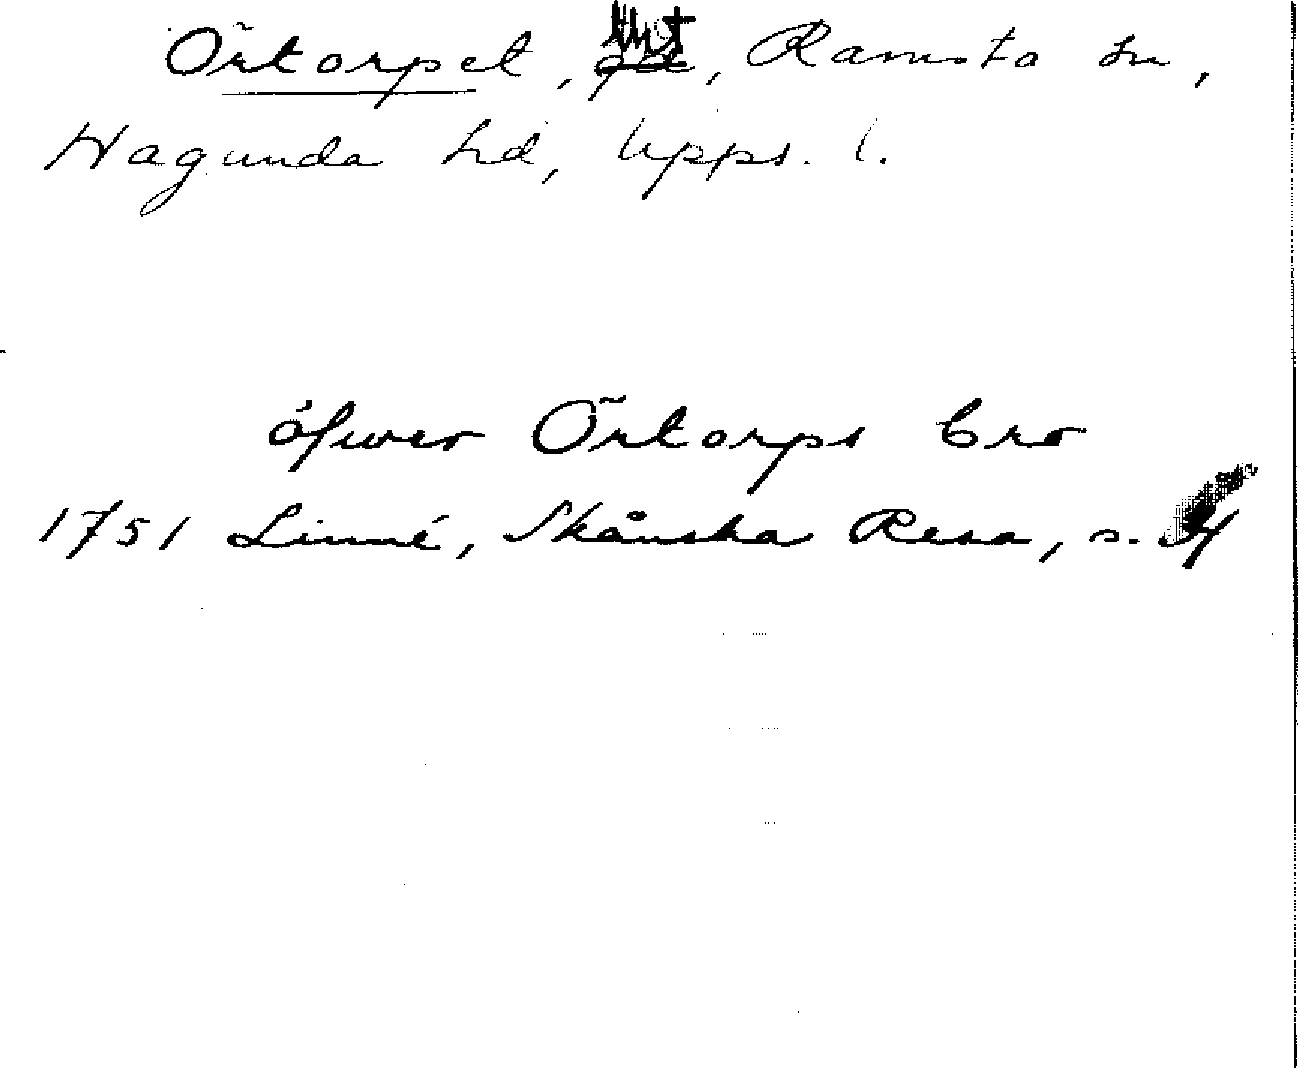 Örtorpet, , Ramsta sn,
Hagunda hd, Upps. l.
öfwer Örtorps bro
1751 Linné, Skånska Resa, s.